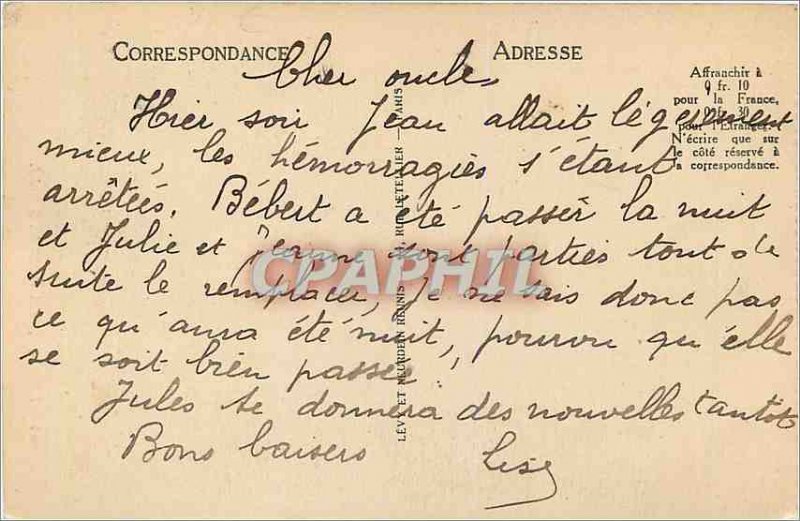 CORRESPONDANCE
ADRESSE
Affranchir à
0 fr. 10
pour la France,
0 fr. 30
pour l'Etranger.
N'écrire que sur
le côté réservé à
la correspondance.
Cher oncle,
Hier soir Jean allait légèrement
mieux, les hémorragies s'étant
arrêtées. Bébert a été passer la nuit
et Julie et Jeanne sont parties tout de
suite le remplacer, je ne sais donc pas
ce qu'aura été nuit, pourvu qu'elle
se soit bien passée,
Jules te donnera des nouvelles tantôt
Bons baisers Lise
LÉVY ET NEURDEIN RÉUNIS RUE LETELLIER — PARIS
CPAPHIL